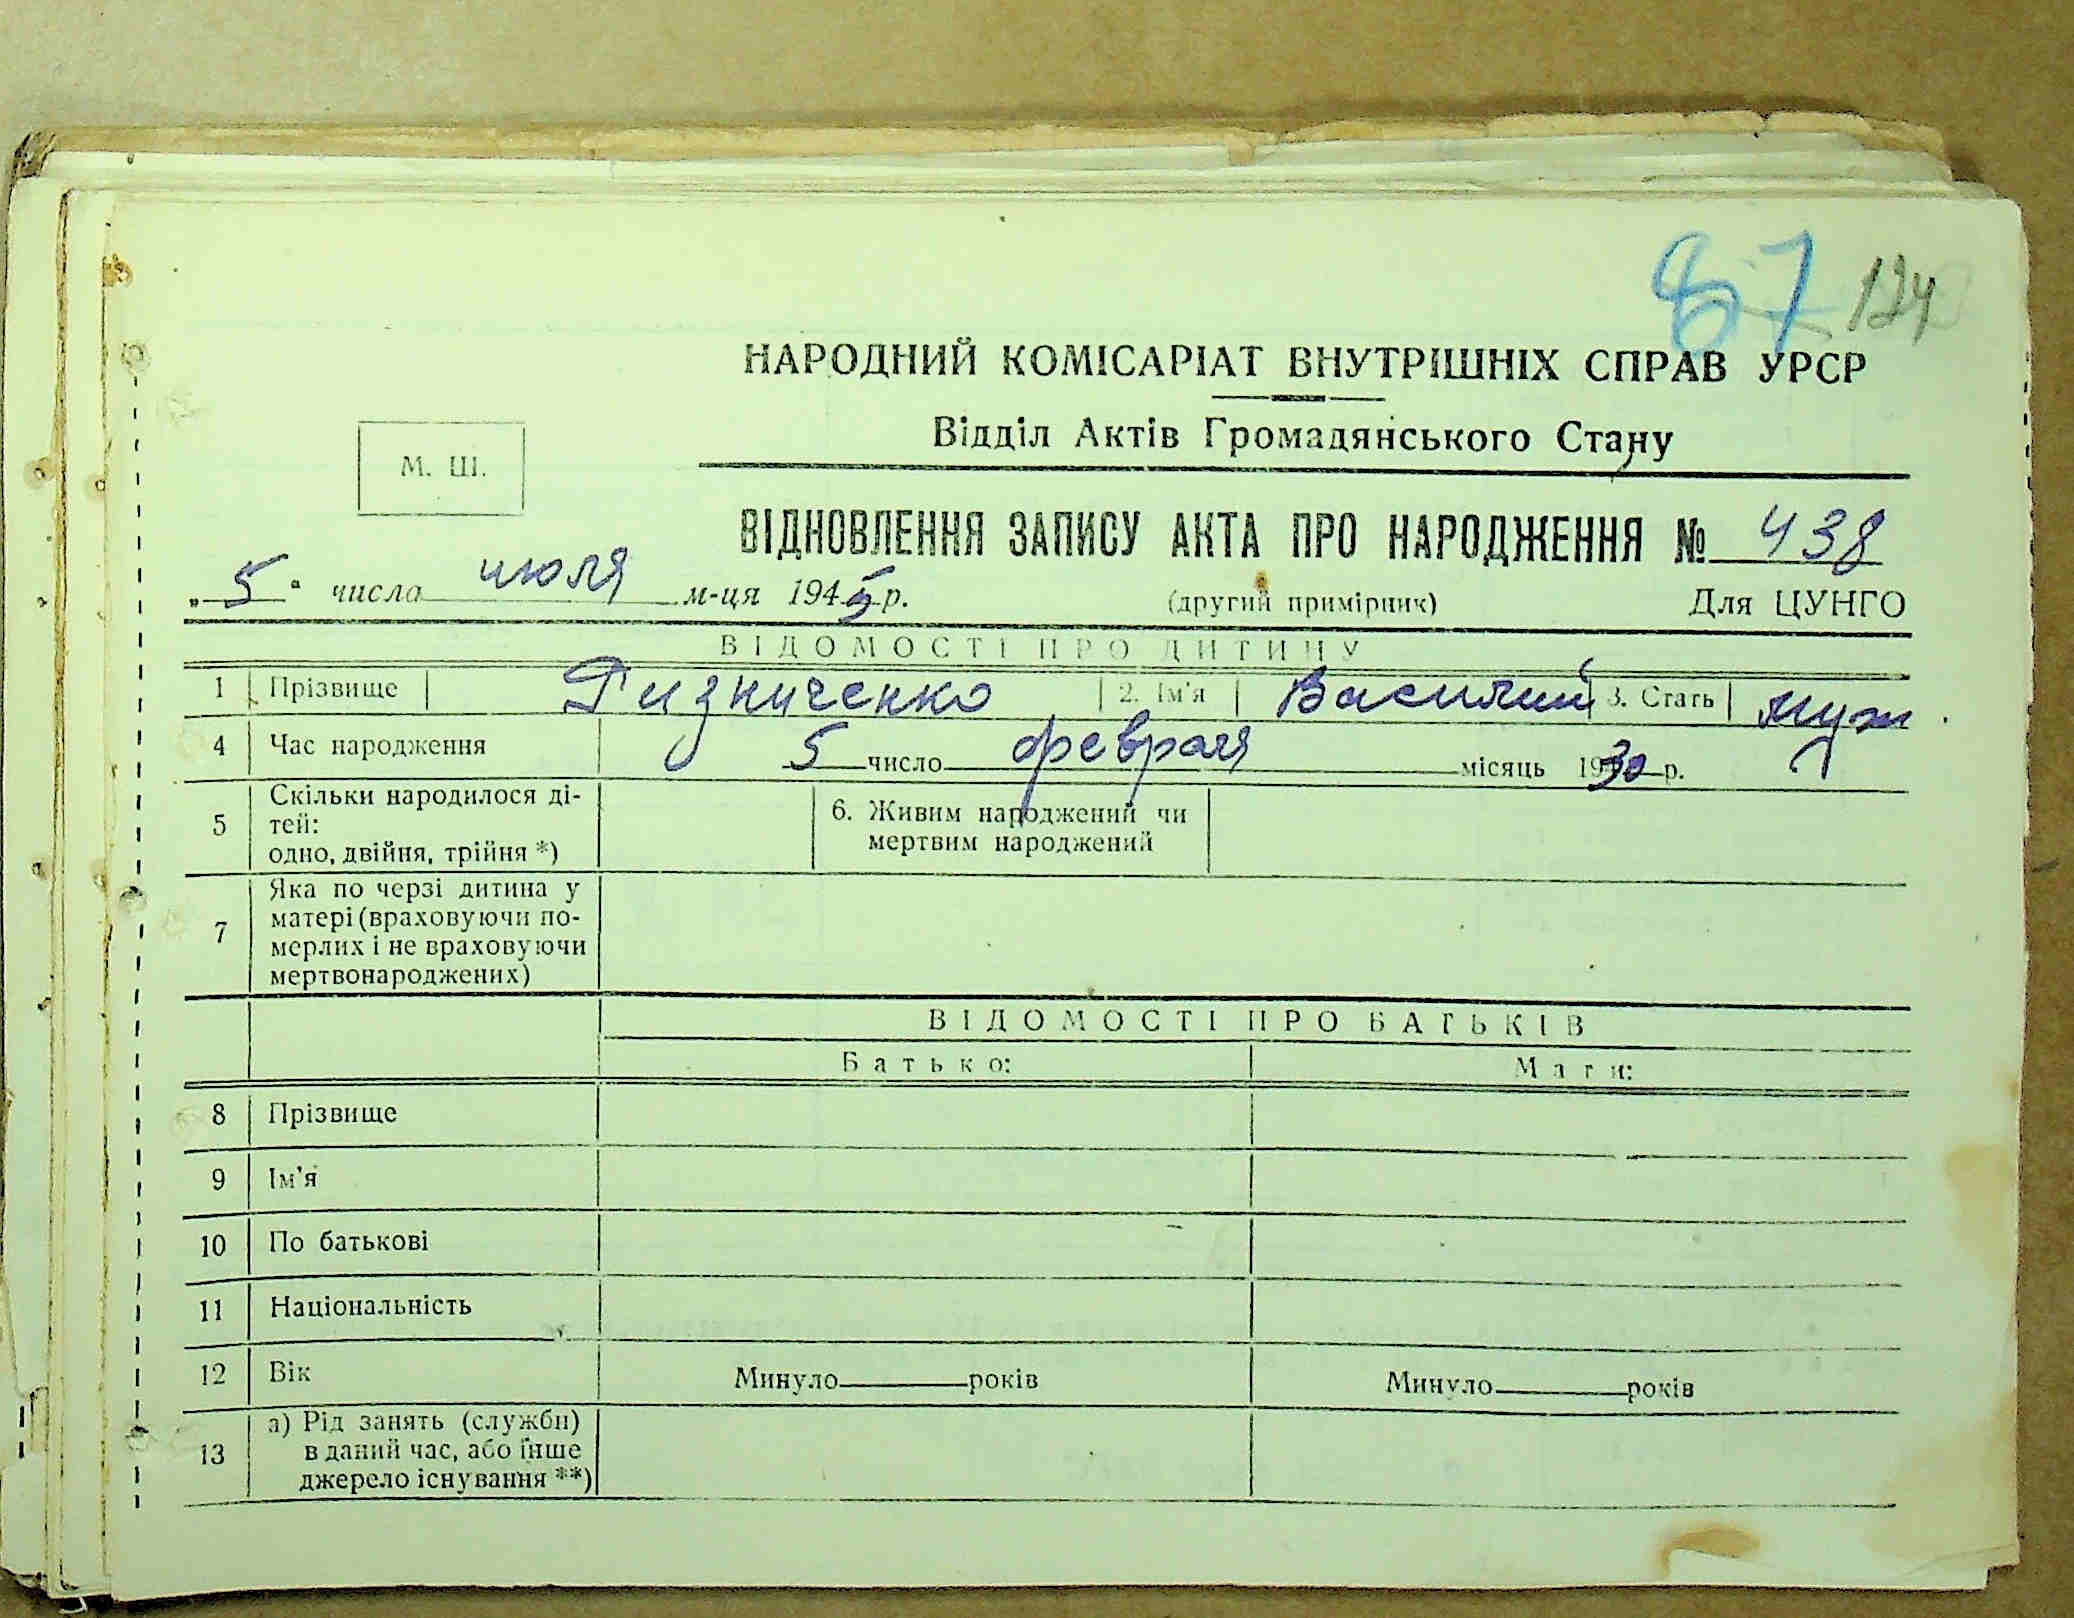 87 124
НАРОДНИЙ КОМІСАРІАТ ВНУТРІШНІХ СПРАВ УРСР
Відділ Актів Громадянського Стану
М. Ш.
ВІДНОВЛЕННЯ ЗАПИСУ АКТА ПРО НАРОДЖЕННЯ № 438
„5“ числа июля м-ця 1945 р. (другий примірник) Для ЦУНГО
ВІДОМОСТІ ПРО ДИТИНУ
1 Прізвище Ризниченко 2. Ім'я Василий 3. Стать муж
4 Час народження 5 число февраля місяць 1930 р.
5 Скільки народилося ді-
тей:
одно, двійня, трійня *)
6. Живим народжений чи
мертвим народжений
7 Яка по черзі дитина у
матері (враховуючи по-
мерлих і не враховуючи
мертвонароджених)
ВІДОМОСТІ ПРО БАТЬКІВ
Батько: Мати:
8 Прізвище
9 Ім'я
10 По батькові
11 Національність
12 Вік Минуло років Минуло років
13 а) Рід занять (служби)
в даний час, або інше
джерело існування **)